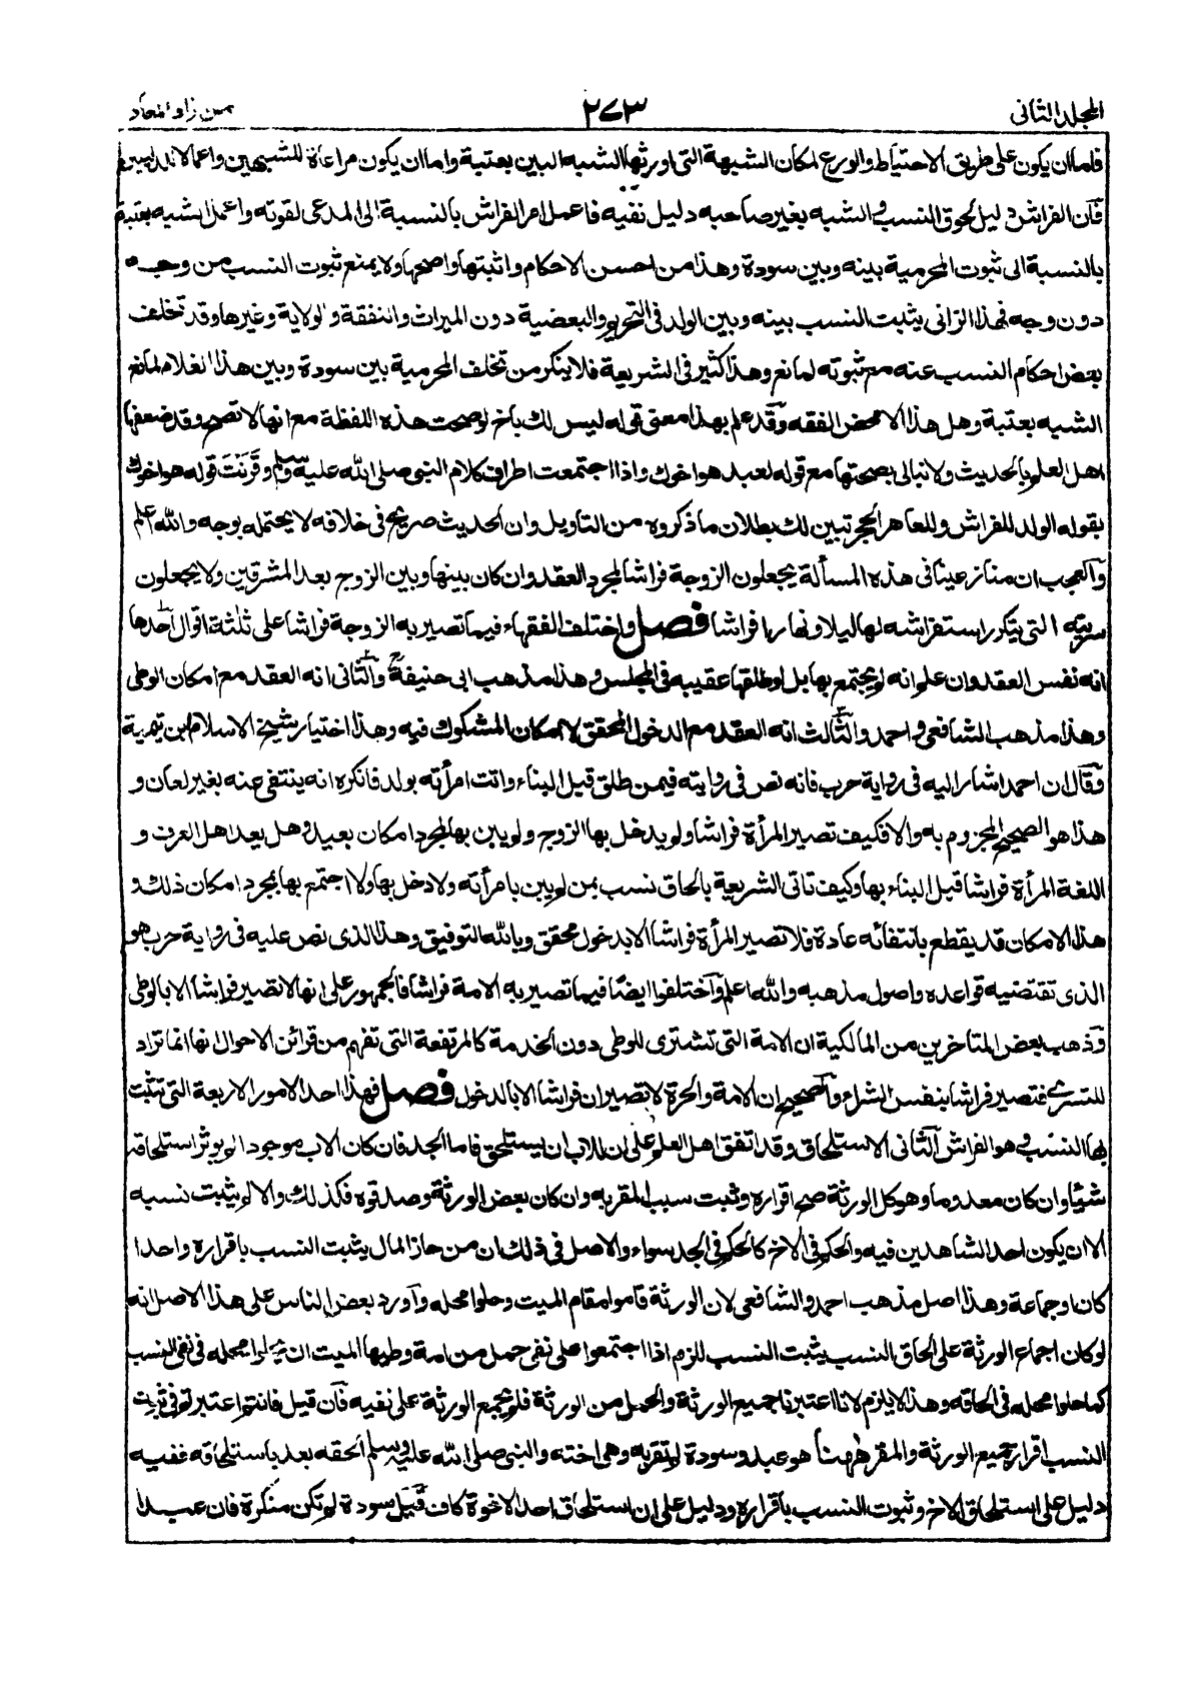 المجلد الثاني
٢٧٣
من زاد المعاد
فاما ان يكون على طريق الاحتياط والورع لمكان الشبهة التى اورثها الشبه البين بعتبة واما ان يكون مراعاة للشبهين واعمالا للدليلين
فان الفراش دليل لحوق النسب والشبه بغير صاحبه دليل نفيه فاعمل امر الفراش بالنسبة الى المدعى لقوته واعمل الشبه بعتبة
بالنسبة الى ثبوت المحرمية بينه وبين سودة وهذا من احسن الاحكام واثبتها واضحها ولا يمنع ثبوت النسب من وجه
دون وجه فهذا الزانى يثبت النسب بينه وبين الولد فى التحريم والبعضية دون الميراث والنفقة والولاية وغيرها وقد تخلف
بعض احكام النسب عنه مع ثبوته لمانع وهذا كثير فى الشريعة فلا ينكر من تخلف المحرمية بين سودة وبين هذا الغلام لمانع
الشبه بعتبة وهل هذا الا محض الفقه وقد علم بهذا معنى قوله ليس لك باخ لو صحت هذه اللفظة مع انها لا تصح وقد ضعفها
اهل العلم بالحديث ولا نبالى بصحتها مع قوله لعبد هو اخوك واذا اجتمعت اطراف كلام النبى صلى الله عليه وسلم وقرنت قوله هو اخوك
بقوله الولد للفراش وللعاهر الحجر تبين لك بطلان ما ذكروه من التاويل وان الحديث صريح فى خلافه لا يحتمله بوجه والله اعلم
والعجب ان منازعينا فى هذه المسألة يجعلون الزوجة فراشا لمجرد العقد وان كان بينها وبين الزوج بعد المشرقين ولا يجعلون
سريته التى يتكرر استفراشه لها ليلا ونهارا فراشا فصل واختلف الفقهاء فيما تصير به الزوجة فراشا على ثلثة اقوال احدها
انه نفس العقد وان علم انه لم يجتمع بها بل لو طلقها عقيبه فى المجلس وهذا مذهب ابى حنيفة والثانى انه العقد مع امكان الوطى
وهذا مذهب الشافعى واحمد والثالث انه العقد مع الدخول المحقق لا امكان المشكوك فيه وهذا اختيار شيخ الاسلام ابن تيمية
وقال ان احمد اشار اليه فى رواية حرب فانه نص فى روايته فيمن طلق قبل البناء واتت امرأته بولد فانكره انه ينتفى عنه بغير لعان و
هذا هو الصحيح المجزوم به والا فكيف تصير المرأة فراشا ولم يدخل بها الزوج ولم يبن بها لمجرد امكان بعيد وهل يعد اهل العرف و
اللغة المرأة فراشا قبل البناء بها وكيف تاتى الشريعة بالحاق نسب بمن لم يبن بامرأته ولا دخل بها ولا اجتمع بها بمجرد امكان ذلك و
هذا الامكان قد يقطع بانتفائه عادة فلا تصير المرأة فراشا الا بدخول محقق وبالله التوفيق وهذا الذى نص عليه فى رواية حرب هو
الذى تقتضيه قواعده واصول مذهبه والله اعلم واختلفوا ايضا فيما تصير به الامة فراشا فالجمهور على انها لا تصير فراشا الا بالوطى
وذهب بعض المتاخرين من المالكية ان الامة التى تشترى للوطى دون الخدمة كالمرتفعة التى تفهم من قرائن الاحوال انها انما تراد
للتسرى فتصير فراشا بنفس الشراء والصحيح ان الامة والحرة لا تصيران فراشا الا بالدخول فصل فهذا احد الامور الاربعة التى تثبت
بها النسب وهو الفراش الثانى الاستلحاق وقد اتفق اهل العلم على ان للاب ان يستلحق فاما الجد فان كان الاب موجودا لم يوثر استلحاقه
شيئا وان كان معدوما وهو كل الورثة صح اقراره وثبت سبب المقر به وان كان بعض الورثة وصدقوه فكذلك والا لم يثبت نسبه
الا ان يكون احد الشاهدين فيه والحكم فى الاخ كالحكم فى الجد سواء والاصل فى ذلك ان من حاز المال يثبت النسب باقراره واحدا
كان او جماعة وهذا اصل مذهب احمد والشافعى لان الورثة قاموا مقام الميت وحلوا محله واورد بعض الناس على هذا الاصل انه
لو كان اجماع الورثة على الحاق النسب يثبت النسب للزم اذا اجتمعوا على نفى حمل من امة وطيها الميت ان يحلوا محله فى نفى النسب
كما حلوا محله فى الحاقه وهذا لا يلزم لانا اعتبرنا جميع الورثة والحمل من الورثة فلم يجمع الورثة على نفيه فان قيل فانتم اعتبرتم فى ثبوت
النسب اقرار جميع الورثة والمقر ههنا هو عبد وسودة لم تقر به وهى اخته والنبى صلى الله عليه وسلم الحقه بعبد باستلحاقه ففيه
دليل على استلحاق الاخ وثبوت النسب باقراره ودليل على ان استلحاق احد الاخوة كاف قيل سودة لم تكن منكرة فان عبدا